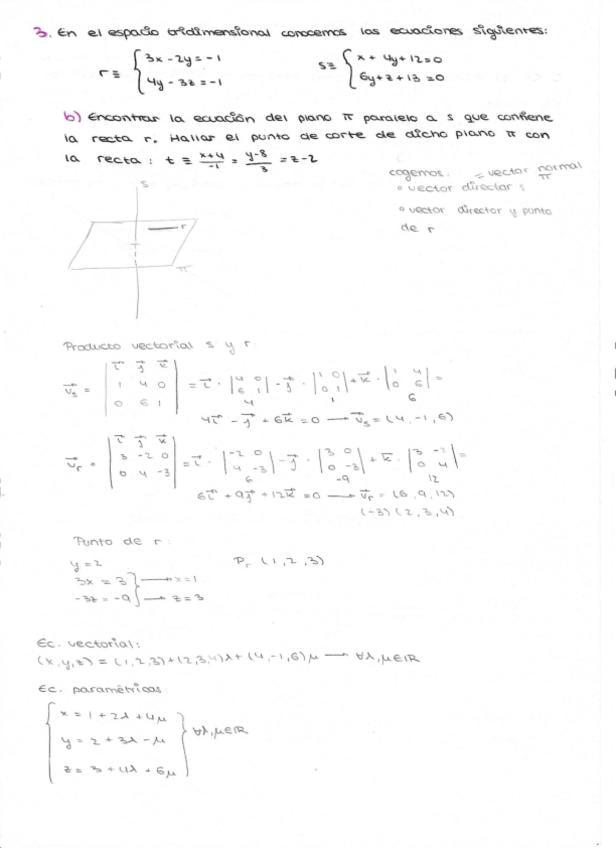 3. En el espacio tridimensional conocemos las ecuaciones siguientes:
r ≡ { 3x - 2y = -1
4y - 3z = -1
s ≡ { x + 4y + 12 = 0
6y + z + 13 = 0
b) Encontrar la ecuación del plano π paralelo a s que contiene
la recta r. Hallar el punto de corte de dicho plano π con
la recta: t ≡ x+4/-1 = y-8/3 = z-2
cogemos: = vector normal π
• vector director s
• vector director y punto
de r
s
r
π
Producto vectorial s y r:
v⃗s = | i⃗ j⃗ k⃗ |
| 1 4 0 |
| 0 6 1 |
= i⃗ · |4 0; 6 1| - j⃗ · |1 0; 0 1| + k⃗ · |1 4; 0 6| =
4 1 6
4i⃗ - j⃗ + 6k⃗ = 0 → v⃗s = (4, -1, 6)
v⃗r = | i⃗ j⃗ k⃗ |
| 3 -2 0 |
| 0 4 -3 |
= i⃗ · |-2 0; 4 -3| - j⃗ · |3 0; 0 -3| + k⃗ · |3 -2; 0 4| =
6 -9 12
6i⃗ + 9j⃗ + 12k⃗ = 0 → v⃗r = (6, 9, 12)
(-3) (2, 3, 4)
Punto de r:
y = 2
3x = 3 } → x = 1
-3z = -9 } → z = 3
Pr (1, 2, 3)
Ec. vectorial:
(x, y, z) = (1, 2, 3) + (2, 3, 4)λ + (4, -1, 6)μ → ∀λ, μ ∈ IR
Ec. paramétricas:
{ x = 1 + 2λ + 4μ
y = 2 + 3λ - μ } ∀λ, μ ∈ IR
z = 3 + 4λ + 6μ